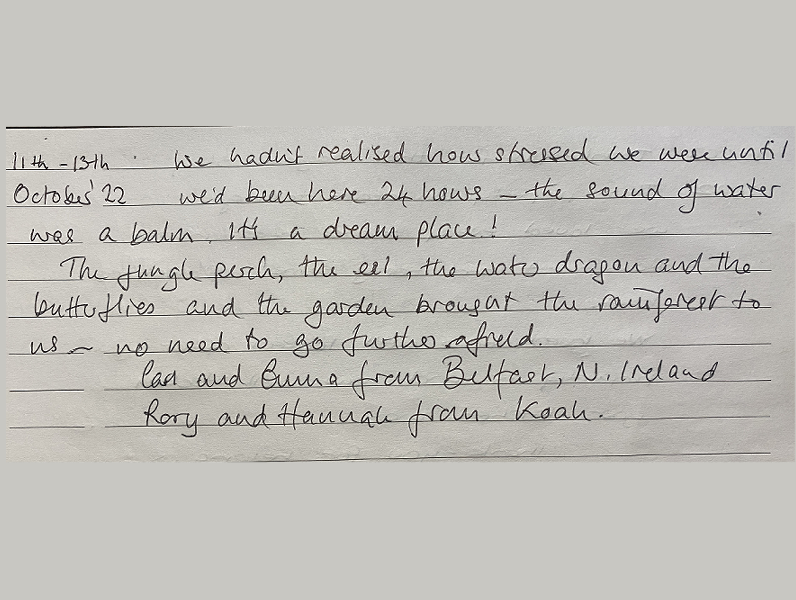 11th - 13th. We hadn't realised how stressed we were until
October '22 we'd been here 24 hours - the sound of water
was a balm. It's a dream place!
The jungle perch, the eel, the water dragon and the
butterflies and the garden brought the rainforest to
us - no need to go further afield.
and from Belfast, N. Ireland
Rory and Hannah from Koah.